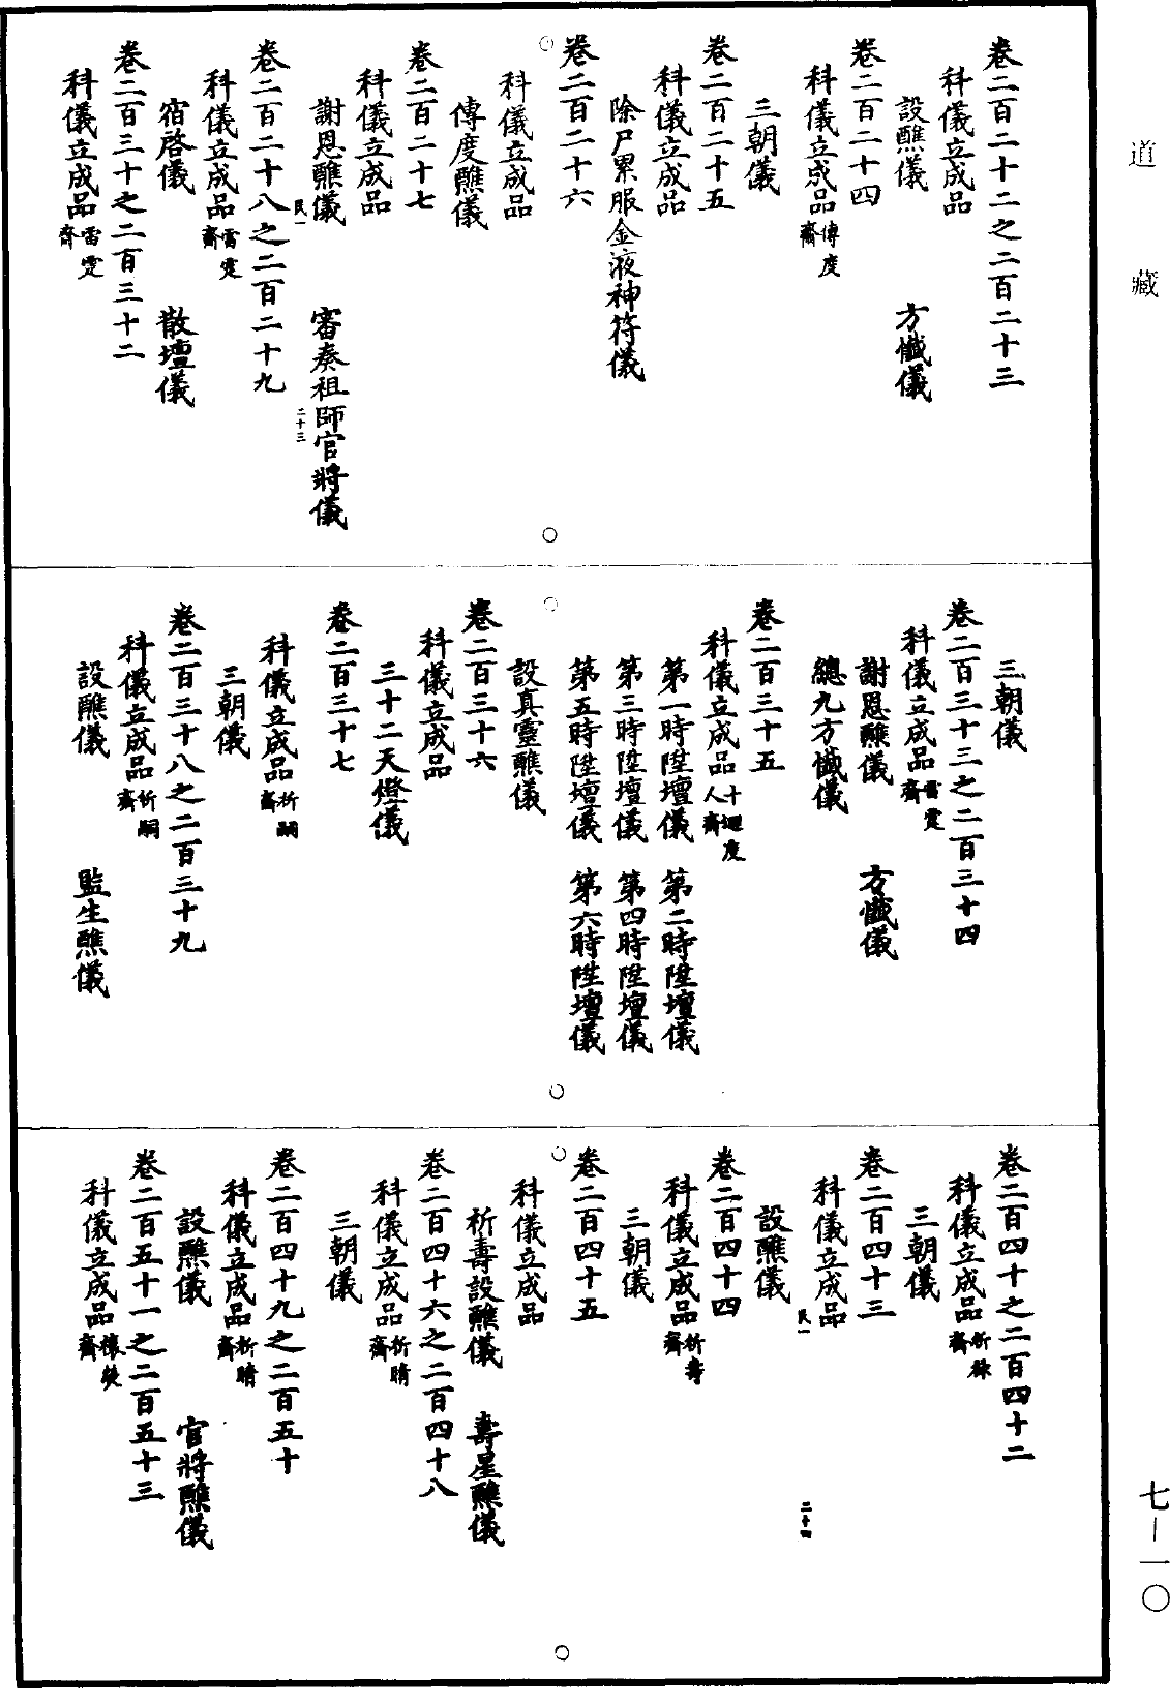 道藏
卷二百二十二之二百二十三
科儀立成品
設醮儀　方懺儀
卷二百二十四
科儀立成品傳度齋
三朝儀
卷二百二十五
科儀立成品
除尸累服金液神符儀
卷二百二十六
科儀立成品
傳度醮儀
卷二百二十七
科儀立成品
謝恩醮儀　審奏祖師官將儀
民一　二十三
卷二百二十八之二百二十九
科儀立成品雷霆齋
宿啓儀　散壇儀
卷二百三十之二百三十二
科儀立成品雷霆齋
三朝儀
卷二百三十三之二百三十四
科儀立成品雷霆齋
謝恩醮儀　方懺儀
總九方懺儀
卷二百三十五
科儀立成品十迴度人齋
第一時陞壇儀　第二時陞壇儀
第三時陞壇儀　第四時陞壇儀
第五時陞壇儀　第六時陞壇儀
設真靈醮儀
卷二百三十六
科儀立成品
三十二天燈儀
卷二百三十七
科儀立成品祈嗣齋
三朝儀
卷二百三十八之二百三十九
科儀立成品祈嗣齋
設醮儀　監生醮儀
卷二百四十之二百四十二
科儀立成品祈祿齋
三朝儀
卷二百四十三
科儀立成品
民一　二十四
設醮儀
卷二百四十四
科儀立成品祈壽齋
三朝儀
卷二百四十五
科儀立成品
祈壽設醮儀　壽星醮儀
卷二百四十六之二百四十八
科儀立成品祈晴齋
三朝儀
卷二百四十九之二百五十
科儀立成品祈晴齋
設醮儀　官將醮儀
卷二百五十一之二百五十三
科儀立成品禳熒齋
七－一〇